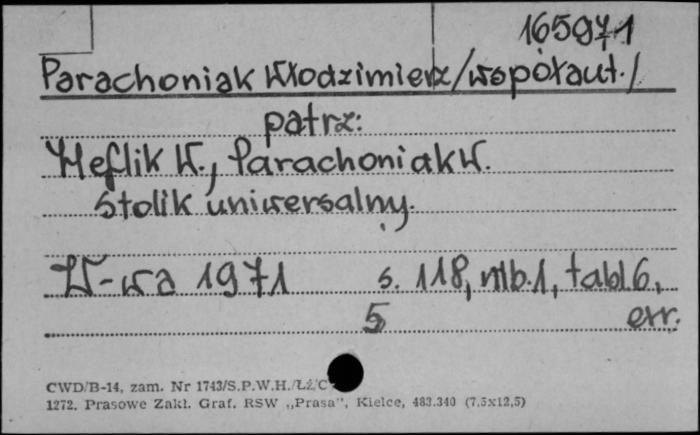 165971
Parachoniak Włodzimierz /współaut./
patrz:
Heflik W., Parachoniak W.
Stolik uniwersalny.
W-wa 1971 s. 118, nlb. 1, tabl. 6,
5 err.
CWD/B-14, zam. Nr 1743/S.P.W.H./Łż/C
1272. Prasowe Zakł. Graf. RSW „Prasa", Kielce, 483.340 (7,5x12,5)